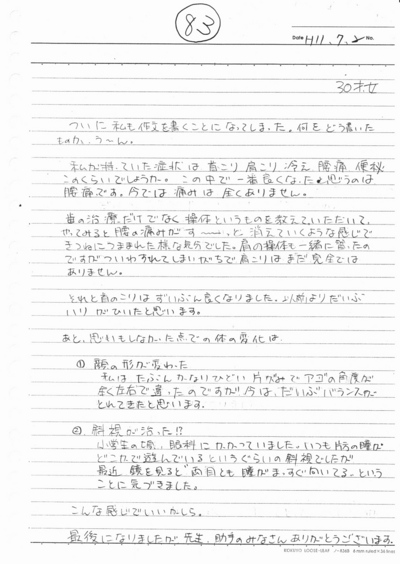 83
Date H11.7.2 No.
30才女
ついに私も作文を書くことになってしまった。何をどう書いた
ものか、う〜ん。
私が持っていた症状は首こり肩こり冷え腰痛便秘
このくらいでしょうか。この中で一番良くなったと思うのは
腰痛です。今では痛みは全くありません。
歯の治療だけでなく操体というものを教えていただいて、
やってみると腰の痛みがす〜〜っと消えていくような感じで
きつねにつままれた様な気分でした。肩の操体も一緒に習ったの
ですがついわすれてしまいがちで肩こりはまだ完全では
ありません。
それと首のこりはずいぶん良くなりました。以前よりだいぶ
ハリがひいたと思います。
あと、思いもしなかった点での体の変化は
① 顔の形が変わった
私はたぶんかなりひどい片がみでアゴの角度が
全く左右で違ったのですが今は、だいぶバランスが
とれてきたと思います。
② 斜視が治った!?
小学生の頃、眼科にかかっていました。いつも片方の瞳が
どこかで遊んでいるというぐらいの斜視でしたが
最近鏡を見ると"両目とも瞳がまっすぐ向いてる"という
ことに気づきました。
こんな感じでいいかしら。
最後になりましたが先生、助手のみなさんありがとうございます。
KOKUYO LOOSE-LEAF